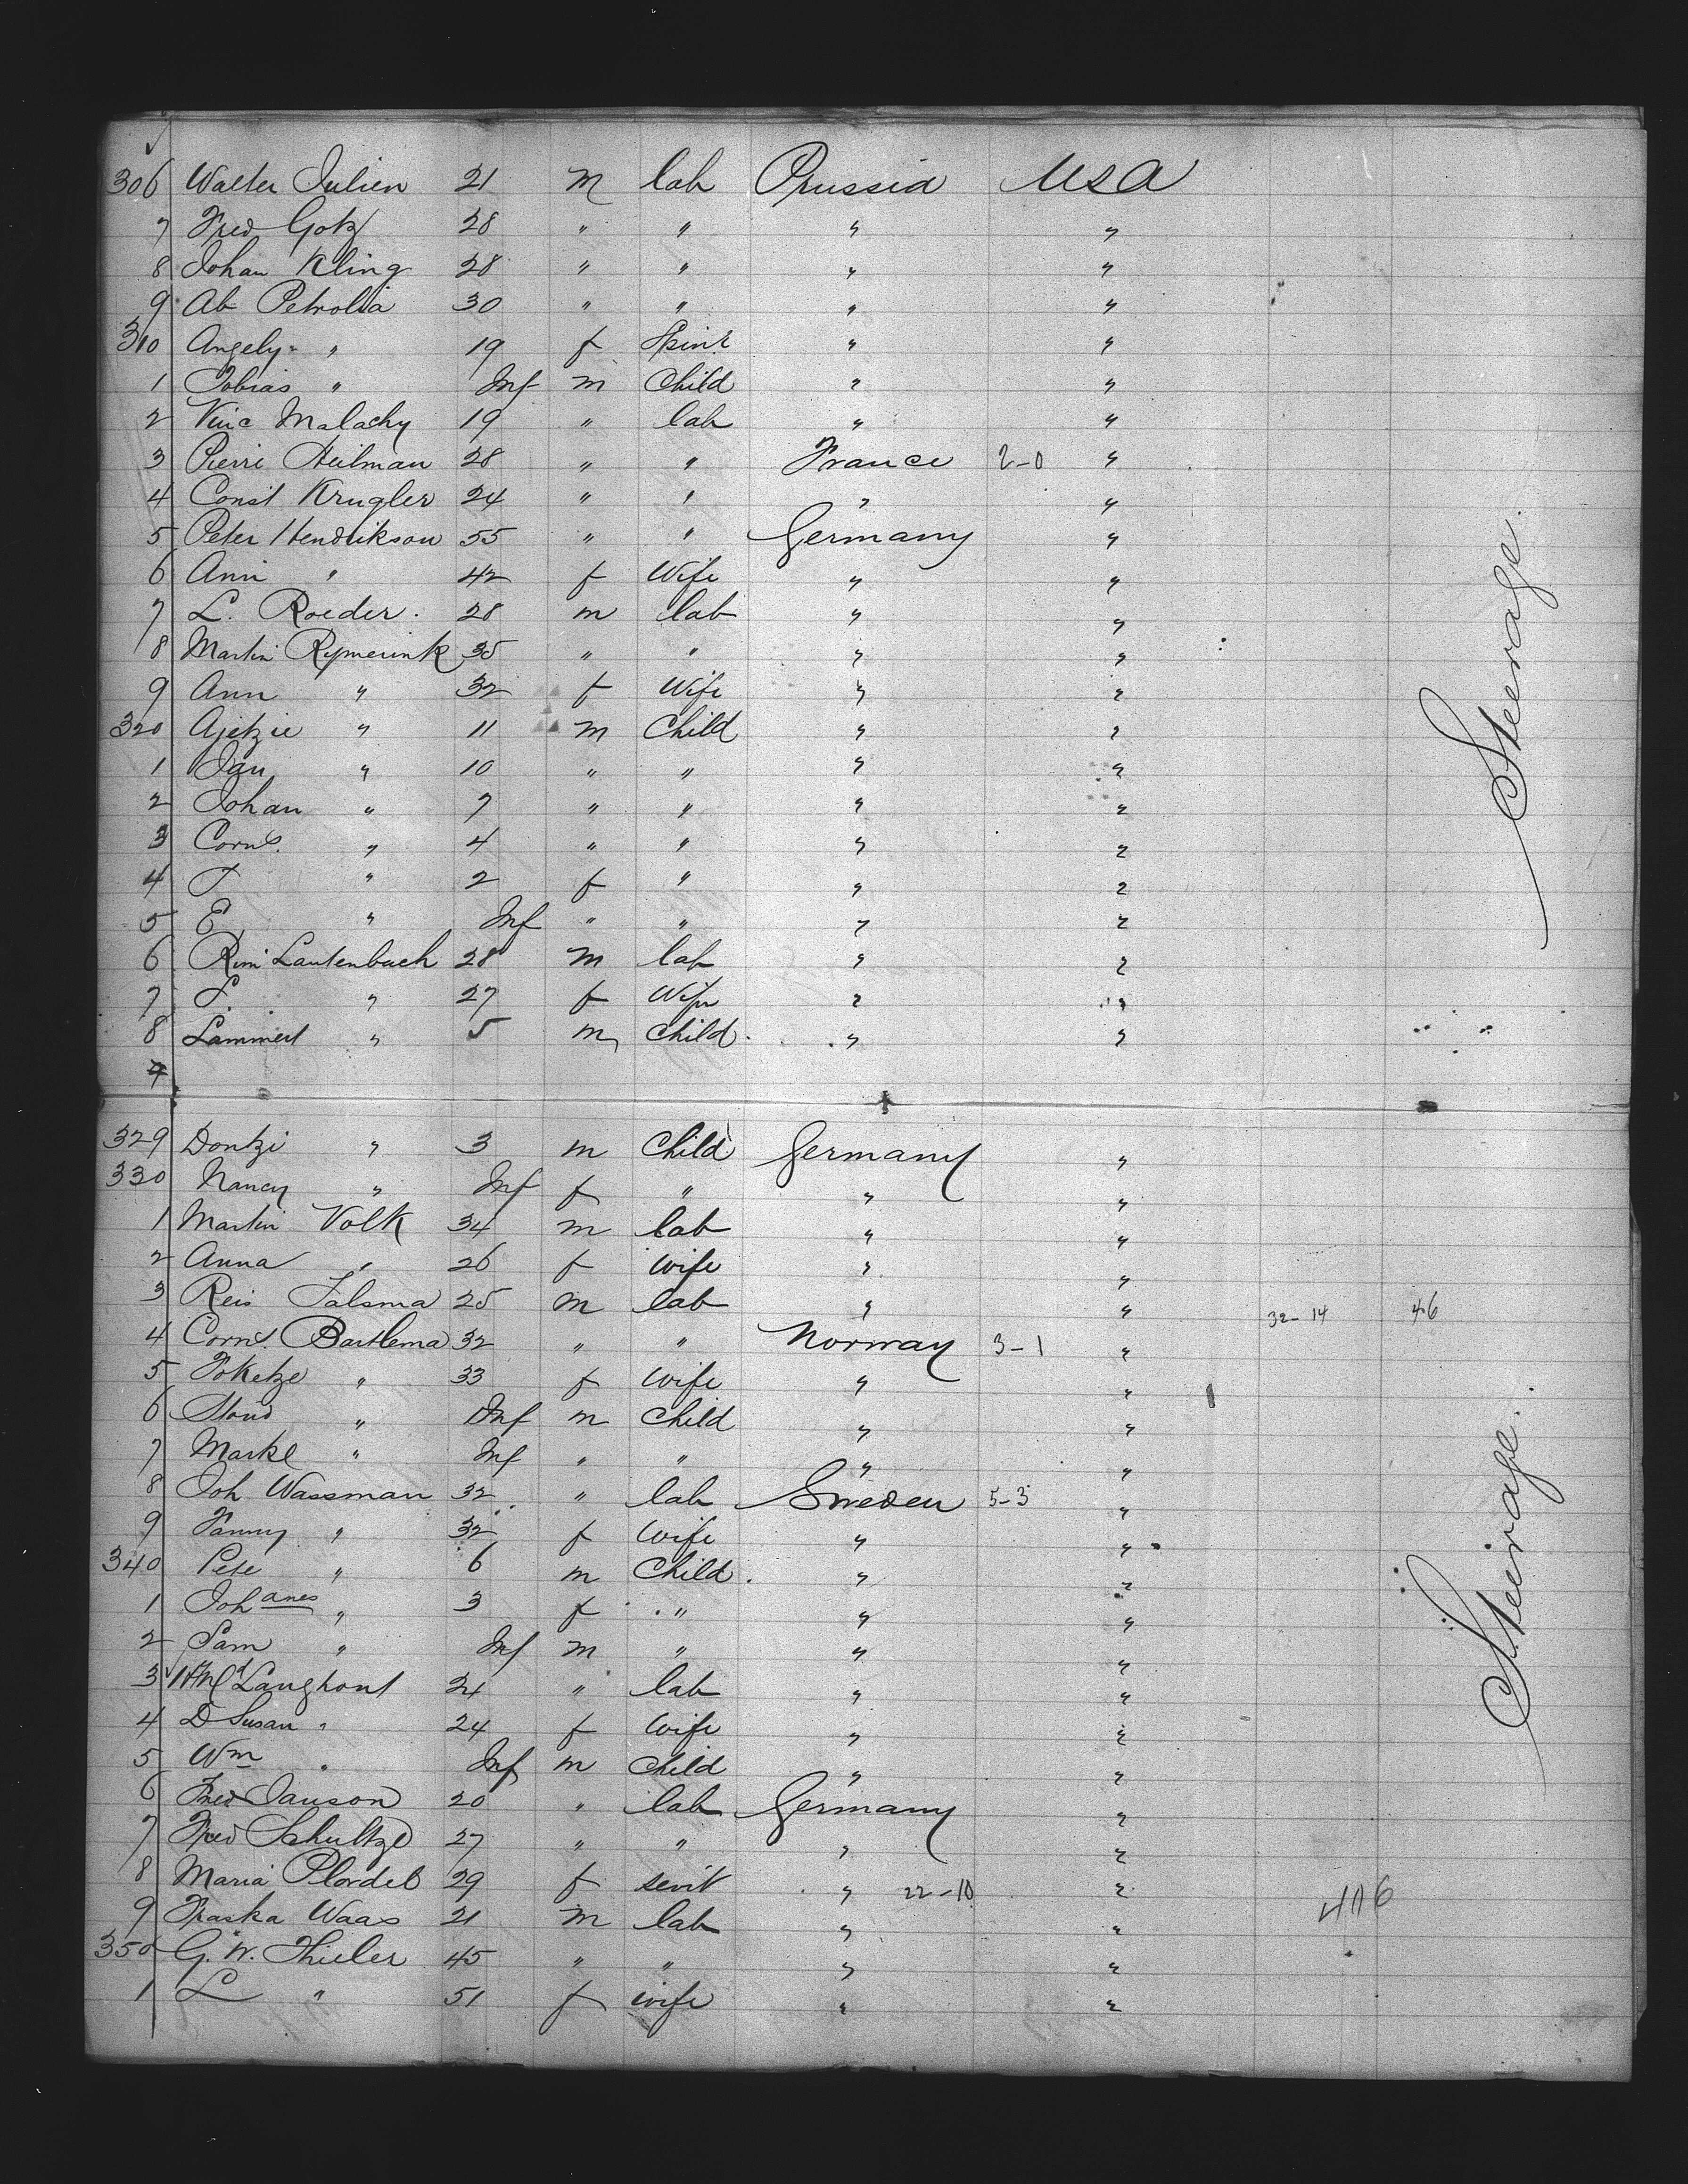 306 Walter Julien 21 m lab Prussia USA
7 Fred Gotz 28 " " " "
8 Johan Kling 28 " " " "
9 Ab Petrolia 30 " " " "
310 Angely " 19 f Spinr " "
1 Tobias " Inf m Child " "
2 Vinc Malachy 19 " lab " "
3 Pierre Heilman 28 " " France 2-0 "
4 Const Krugler 24 " " " "
5 Peter Hendrikson 55 " " Germany "
6 Ann " 42 f Wife " "
7 L. Roeder. 28 m lab " "
8 Martin Rymerink 35 " " " "
9 Ann " 32 f Wife " "
320 Ajetzie " 11 m Child " "
1 Jan " 10 " " " "
2 Johan " 7 " " " "
3 Corns. " 4 " " " "
4 T " 2 f " " "
5 E " Inf " " " "
6 Rim Lautenbach 28 m lab " "
7 T. " 27 f Wife " "
8 Lammert " 5 m Child. " "
Steerage.
9
329 Dontzi " 3 m Child Germany "
330 Nancy " Inf f " " "
1 Martin Volk 34 m lab " "
2 Anna " 26 f wife " "
3 Reis Talsma 25 m lab " " 32-14 46
4 Corns. Barthema 32 " " Norway 3-1 "
5 Foketze " 33 f wife " "
6 " Inf m Child " "
7 Markl " Inf " " " "
8 Joh Wassman 32 " lab Sweden 5-3 "
9 Fanny " 32 f wife " "
340 Pete " 6 m Child. " "
1 Johanes " 3 f " " "
2 Sam " Inf m " " "
3 Langhout 24 " lab " "
4 D Susan " 24 f wife " "
5 Wm " Inf m Child " "
6 Fred Janson 20 " lab Germany "
7 Fred Schultze 27 " " " "
8 Maria 29 f servt " 22-10 "
9 Fraska Waas 21 m lab " " 406
350 G. W. Thieler 45 " " " "
1 L " 51 f wife " "
Steerage.